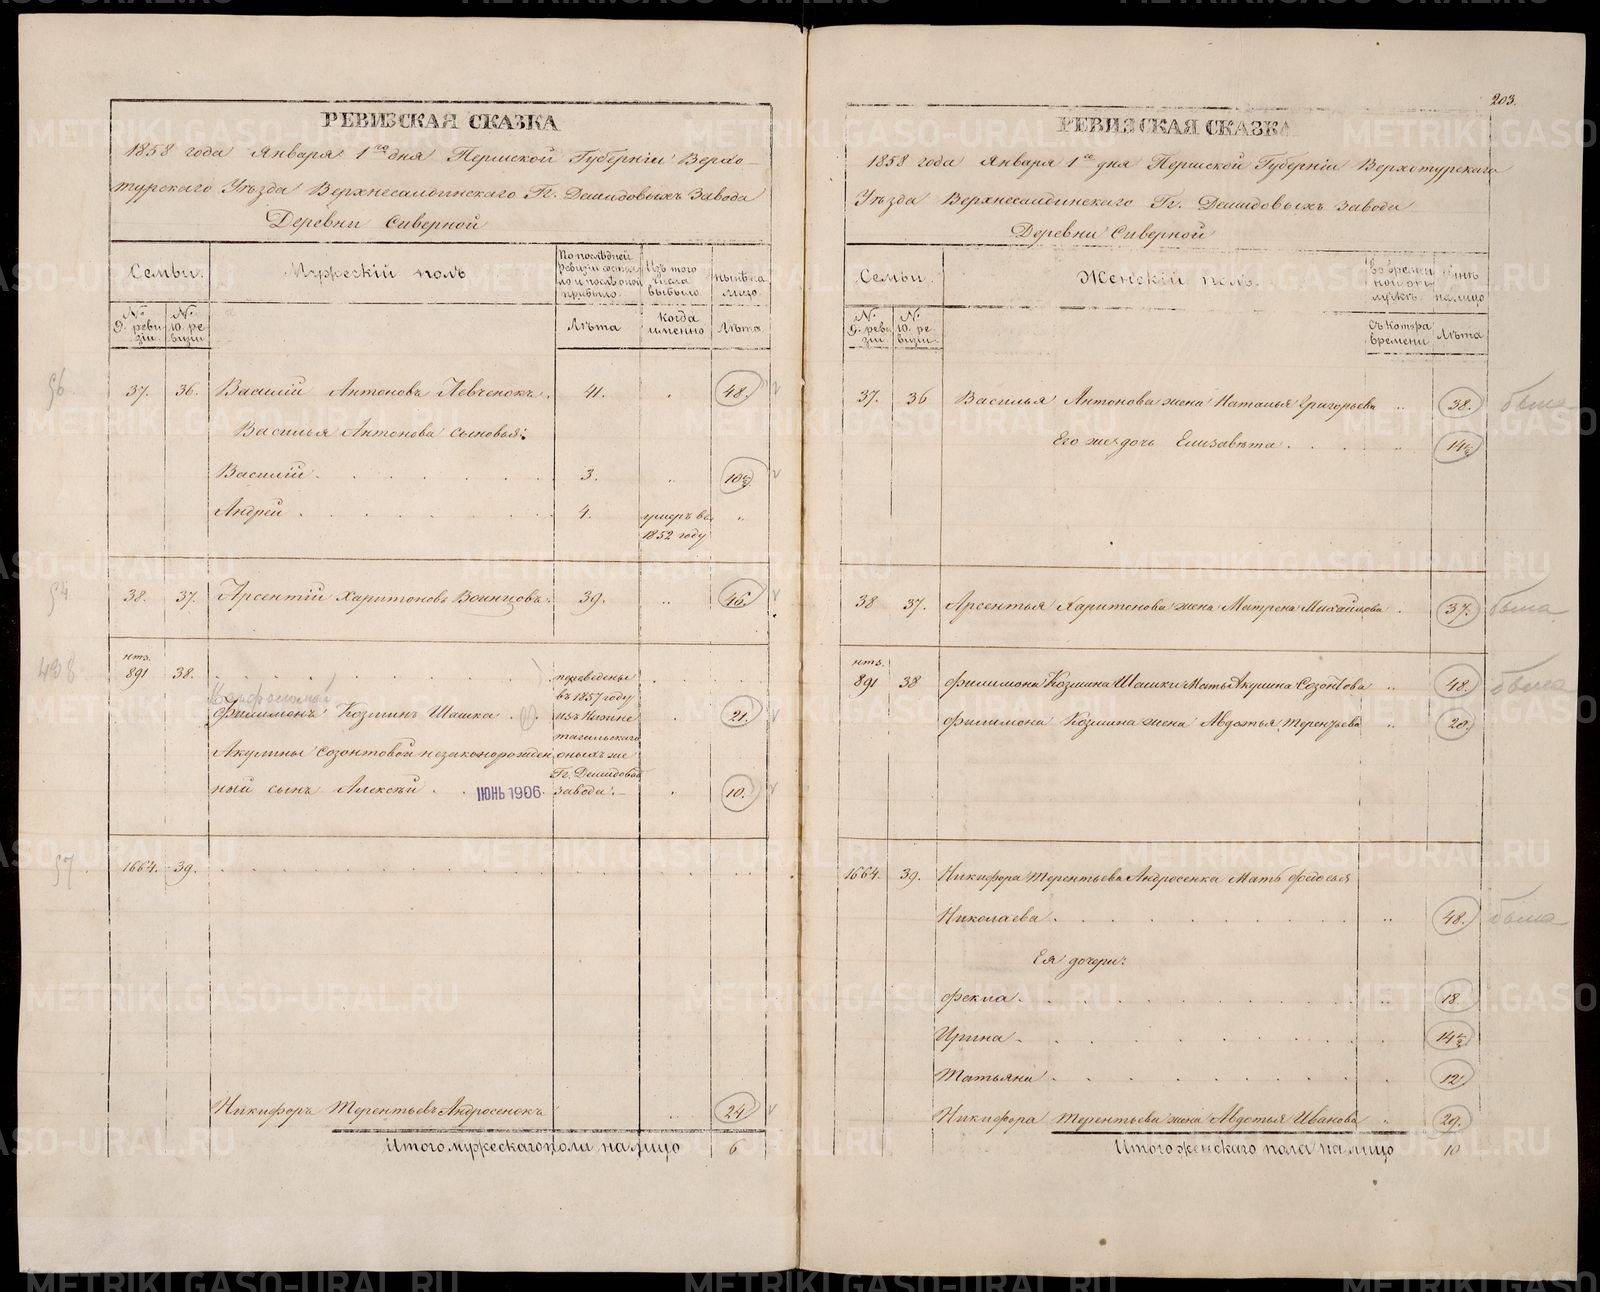 РЕВИЗСКАЯ СКАЗКА
1858 года Января 1го дня Пермской Губернiи Верхо-
турскаго Уѣзда Верхнесалдинскаго Гг. Демидовыхъ Завода
Деревни Сиверной
Семьи.
Мужескiй полъ
По послѣдней
Ревизiи состоя-
ло и послѣ оной
прибыло.
Изъ того
числа
выбыло.
нынѣ на
лицо.
№
9. реви-
зiи.
№
10. ре-
визiи
Лѣта
Когда
именно
Лѣта.
96
37. 36. Василiй Антоновъ Левченокъ. 41. 48.
Василья Антонова сыновья:
Василiй 3. 10½
Андрей 4. умеръ въ
1852 году
94
38. 37. Арсентiй Харитоновъ Воинцовъ. 39. 46.
498
нтз.
891 38. переведены
въ 1857 году
Филимонъ Козминъ Шашка изъ Нижне 21.
тагильскаго
Акулины Созонтовой незаконорожден оныхъ же
Гг. Демидовых
ный сынъ Алексѣй ИЮНЬ 1906 завода. 10.
97
1664. 39.
Никифоръ Терентьевъ Андросенокъ 24
Итого мужескаго пола на лицо 6
203.
РЕВИЗСКАЯ СКАЗКА
1858 года Января 1го дня Пермской Губернiи Верхотурскаго
Уѣзда Верхнесалдинскаго Гг. Демидовыхъ завода
Деревни Сиверной
Семьи.
Женскiй полъ.
Во времен
ной от-
лучкѣ.
Нынѣ
на лицо
№
9. реви
зiи
№
10. ре-
визiи
Съ котора
времени
Лѣта
37. 36 Василья Антонова жена Наталья Григорьева 38. была
Его же дочь Елизавета 14½
38 37. Арсентья Харитонова жена Матрена Михайлова 37. была
нтз.
891 38 Филимона Козмина Шашки Мать Акулина Созонтова 48. была
Филимона Козмина жена Авдотья Терентьева 20.
1664. 39. Никифора Терентьева Андросенка Мать Федосья
Николаева 48. была
Ея дочери:
Фекла 18.
Ирина 14½
Татьяна 12
Никифора Терентьева жена Авдотья Иванова 29.
Итого женскаго пола на лицо 10
METRIKI.GASO-URAL.RU